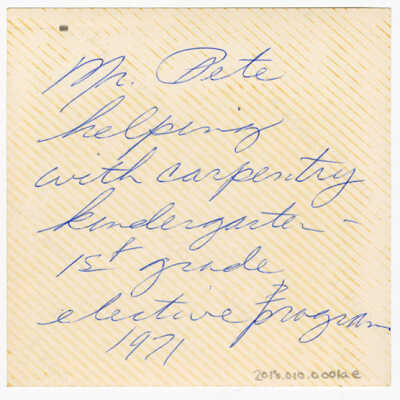 Mr. Pete
helping
with carpentry
kindergarten -
1st grade
elective program
1971